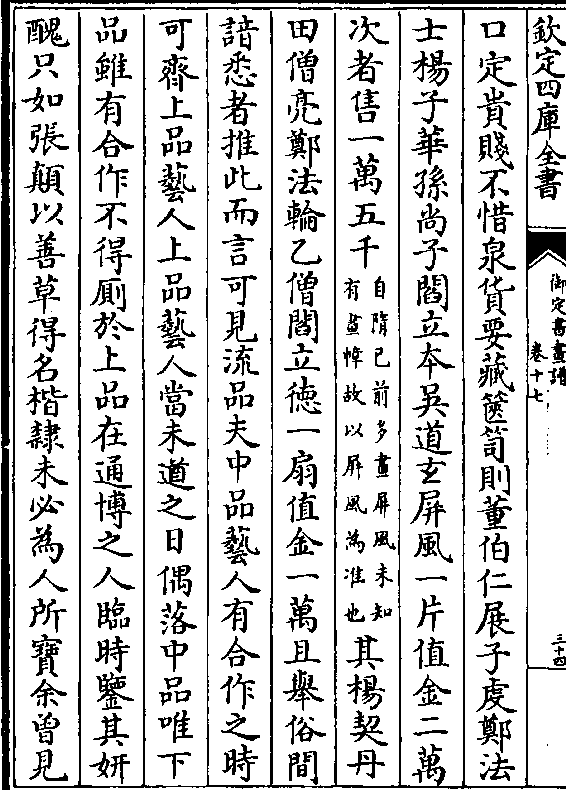 欽定四庫全書
御定書畫譜
卷十七
三十四
口定貴賤不惜泉貨要藏篋笥則董伯仁展子虔鄭法
士楊子華孫尚子閻立本吳道玄屏風一片值金二萬
次者售一萬五千自隋已前多畫屏風未知
有畫幛故以屏風為准也其楊契丹
田僧亮鄭法輪乙僧閻立徳一扇值金一萬且舉俗間
諳悉者推此而言可見流品夫中品藝人有合作之時
可齊上品藝人上品藝人當未遒之日偶落中品唯下
品雖有合作不得厠於上品在通博之人臨時鑒其妍
醜只如張顛以善草得名楷隸未必為人所寶余曾見